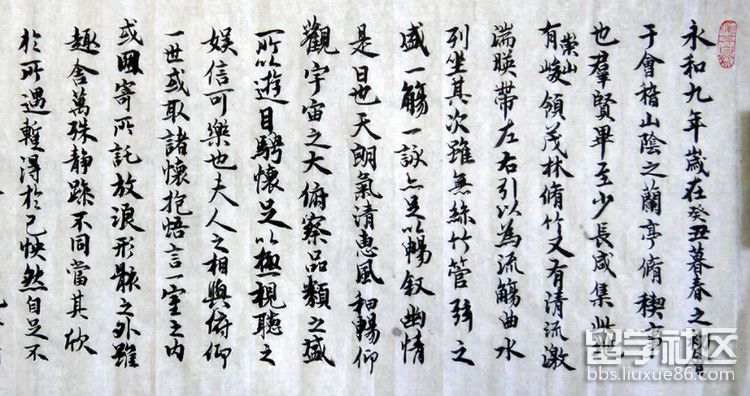 永和九年歲在癸丑暮春之初會
于會稽山陰之蘭亭脩稧事
也羣賢畢至少長咸集此地
有崇山峻領茂林脩竹又有清流激
湍暎帶左右引以為流觴曲水
列坐其次雖無絲竹管弦之
盛一觴一詠亦足以暢叙幽情
是日也天朗氣清惠風和暢仰
觀宇宙之大俯察品類之盛
所以遊目騁懷足以極視聽之
娛信可樂也夫人之相與俯仰
一世或取諸懷抱悟言一室之內
或因寄所託放浪形骸之外雖
趣舍萬殊靜躁不同當其欣
於所遇暫得於己怏然自足不
留学社区
bbs.liuxue86.com